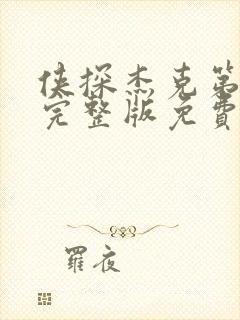 侠探杰克第
完整版免費
羅夜